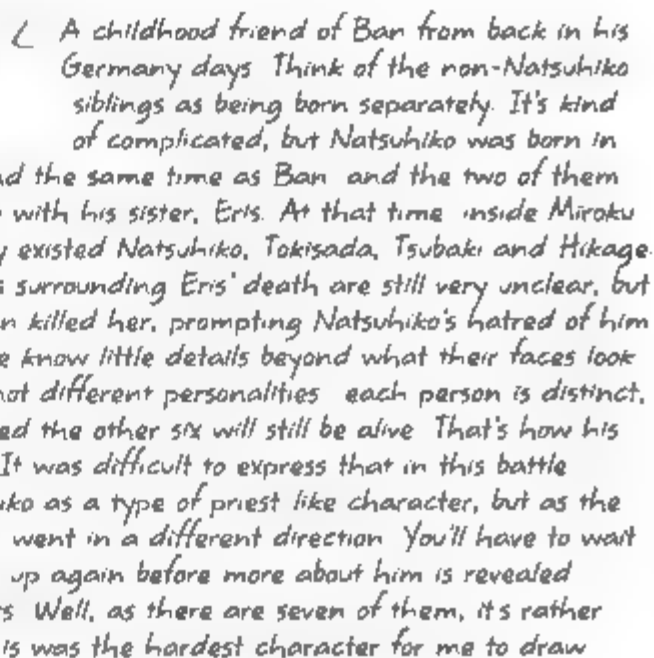 A childhood friend of Ban from back in his
Germany days Think of the non-Natsuhiko
siblings as being born separately. It's kind
of complicated, but Natsuhiko was born in
the same time as Ban and the two of them
with his sister, Eris. At that time inside Miroku
existed Natsuhiko, Tokisada, Tsubaki and Hikage.
surrounding Eris' death are still very unclear, but
killed her, prompting Natsuhiko's hatred of him
know little details beyond what their faces look
different personalities each person is distinct,
the other six will still be alive That's how his
It was difficult to express that in this battle
as a type of priest like character, but as the
went in a different direction You'll have to wait
up again before more about him is revealed
Well, as there are seven of them, it's rather
is was the hardest character for me to draw